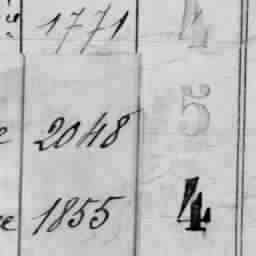 1771 4
2048 5
e 1855 4